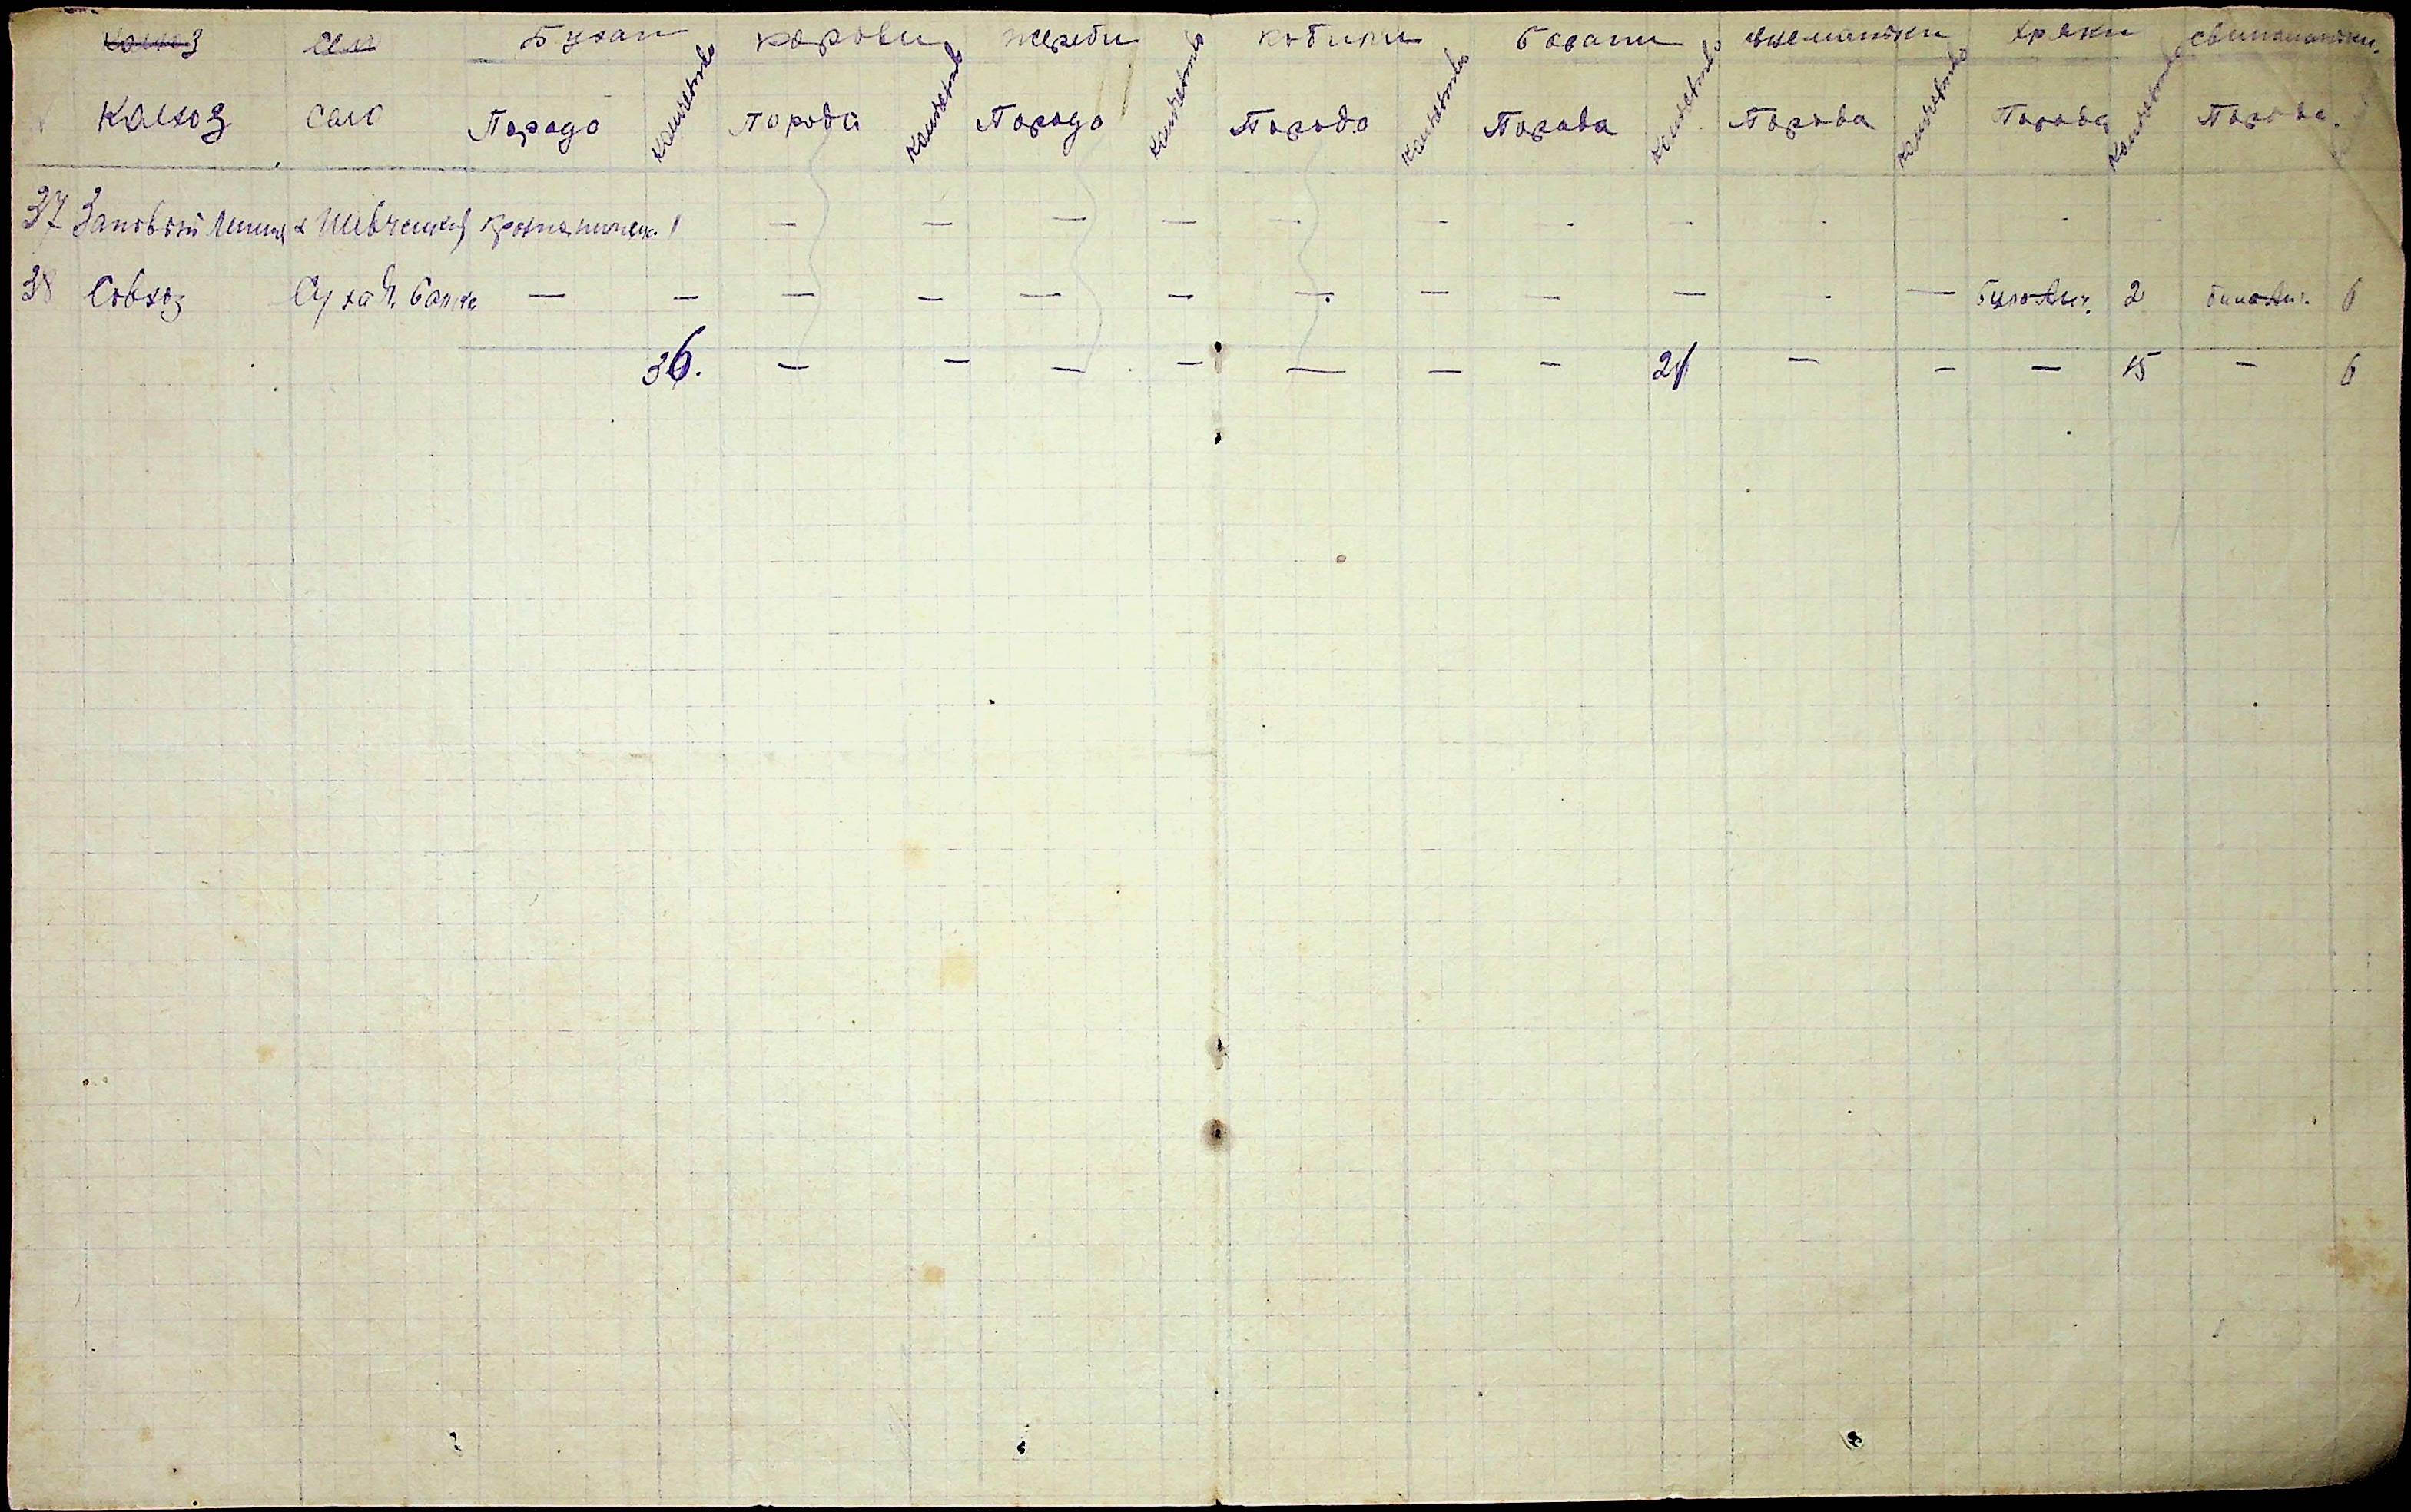 Колхоз Село Бугаи корови жереби кобили барани вцематки хряки свиноматки.
Колхоз Село Порода Количество Порода Количество Порода Количество Порода Количество Порода Количество Порода Количество Порода Количество Порода.
37 Заповьт Ленина х Шевченко Краснонімецк. 1 — — — — - - - - - -
38 Совхоз Суха Ч. Балка — — — — — — — — — — - — билоАнг. 2 билоАнг. 6
36. — — — — — — — 21 — — — 15 — 6